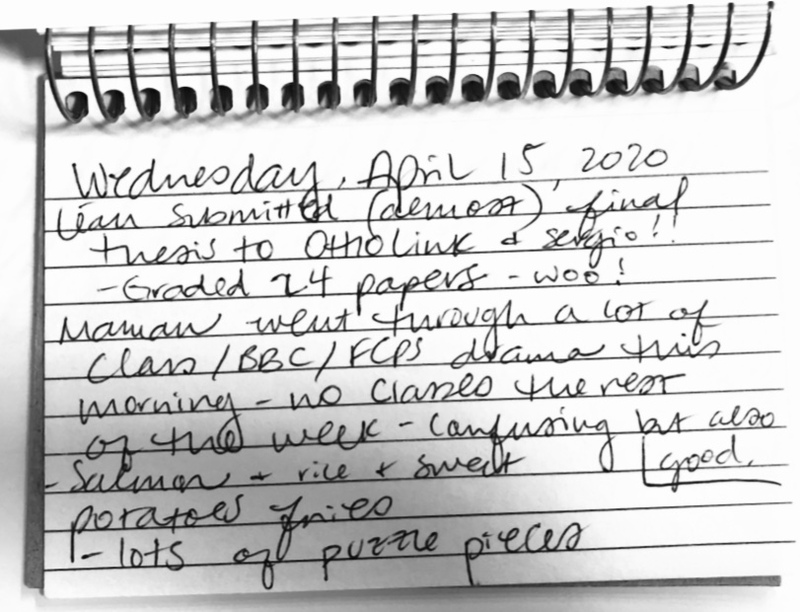 Wednesday, April 15, 2020
Lian submitted (almost) final
thesis to Otho Link & Sergio!!
- Graded 24 papers - woo!
Maman went through a lot of
Class/BBC/FCPS drama this
morning - no classes the rest
of the week - confusing but also
good.
- Salmon + rice + sweet
potatoes fries
- lots of puzzle pieces